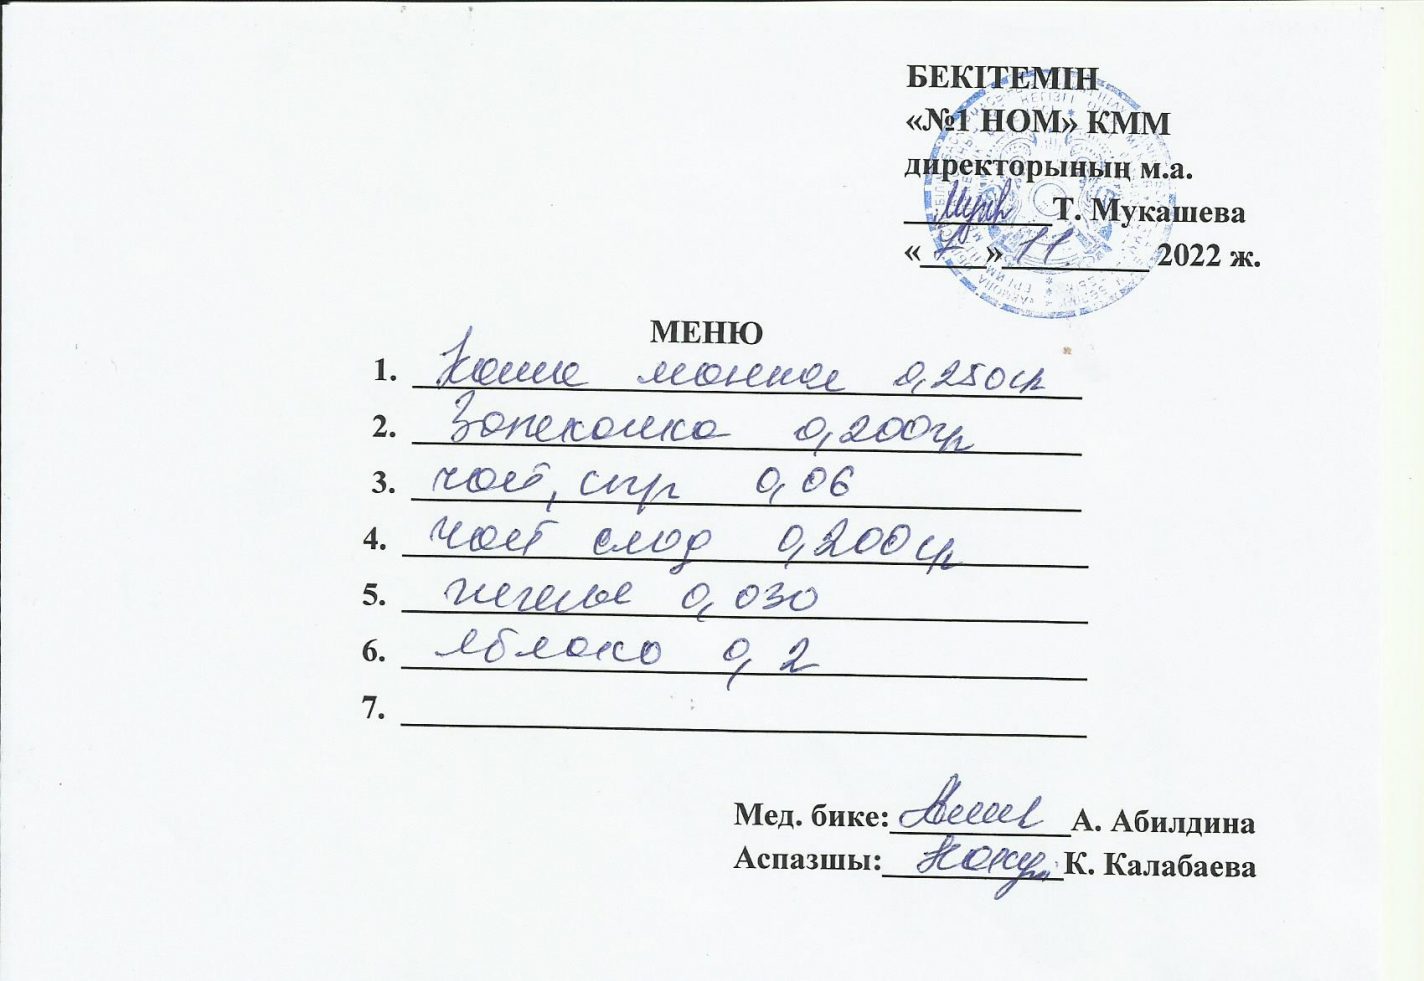 БЕКІТЕМІН
«№1 НОМ» КММ
директорының м.а.
Т. Мукашева
«___» 11. 2022 ж.
МЕНЮ
1. Каша манная 0,250гр
2. Запеканка 0,200гр
3. чай, сыр 0,06
4. чай слад 0,200гр
5. печенье 0,030
6. яблоко 0,2
7.
Мед. бике: А. Абилдина
Аспазшы: К. Калабаева